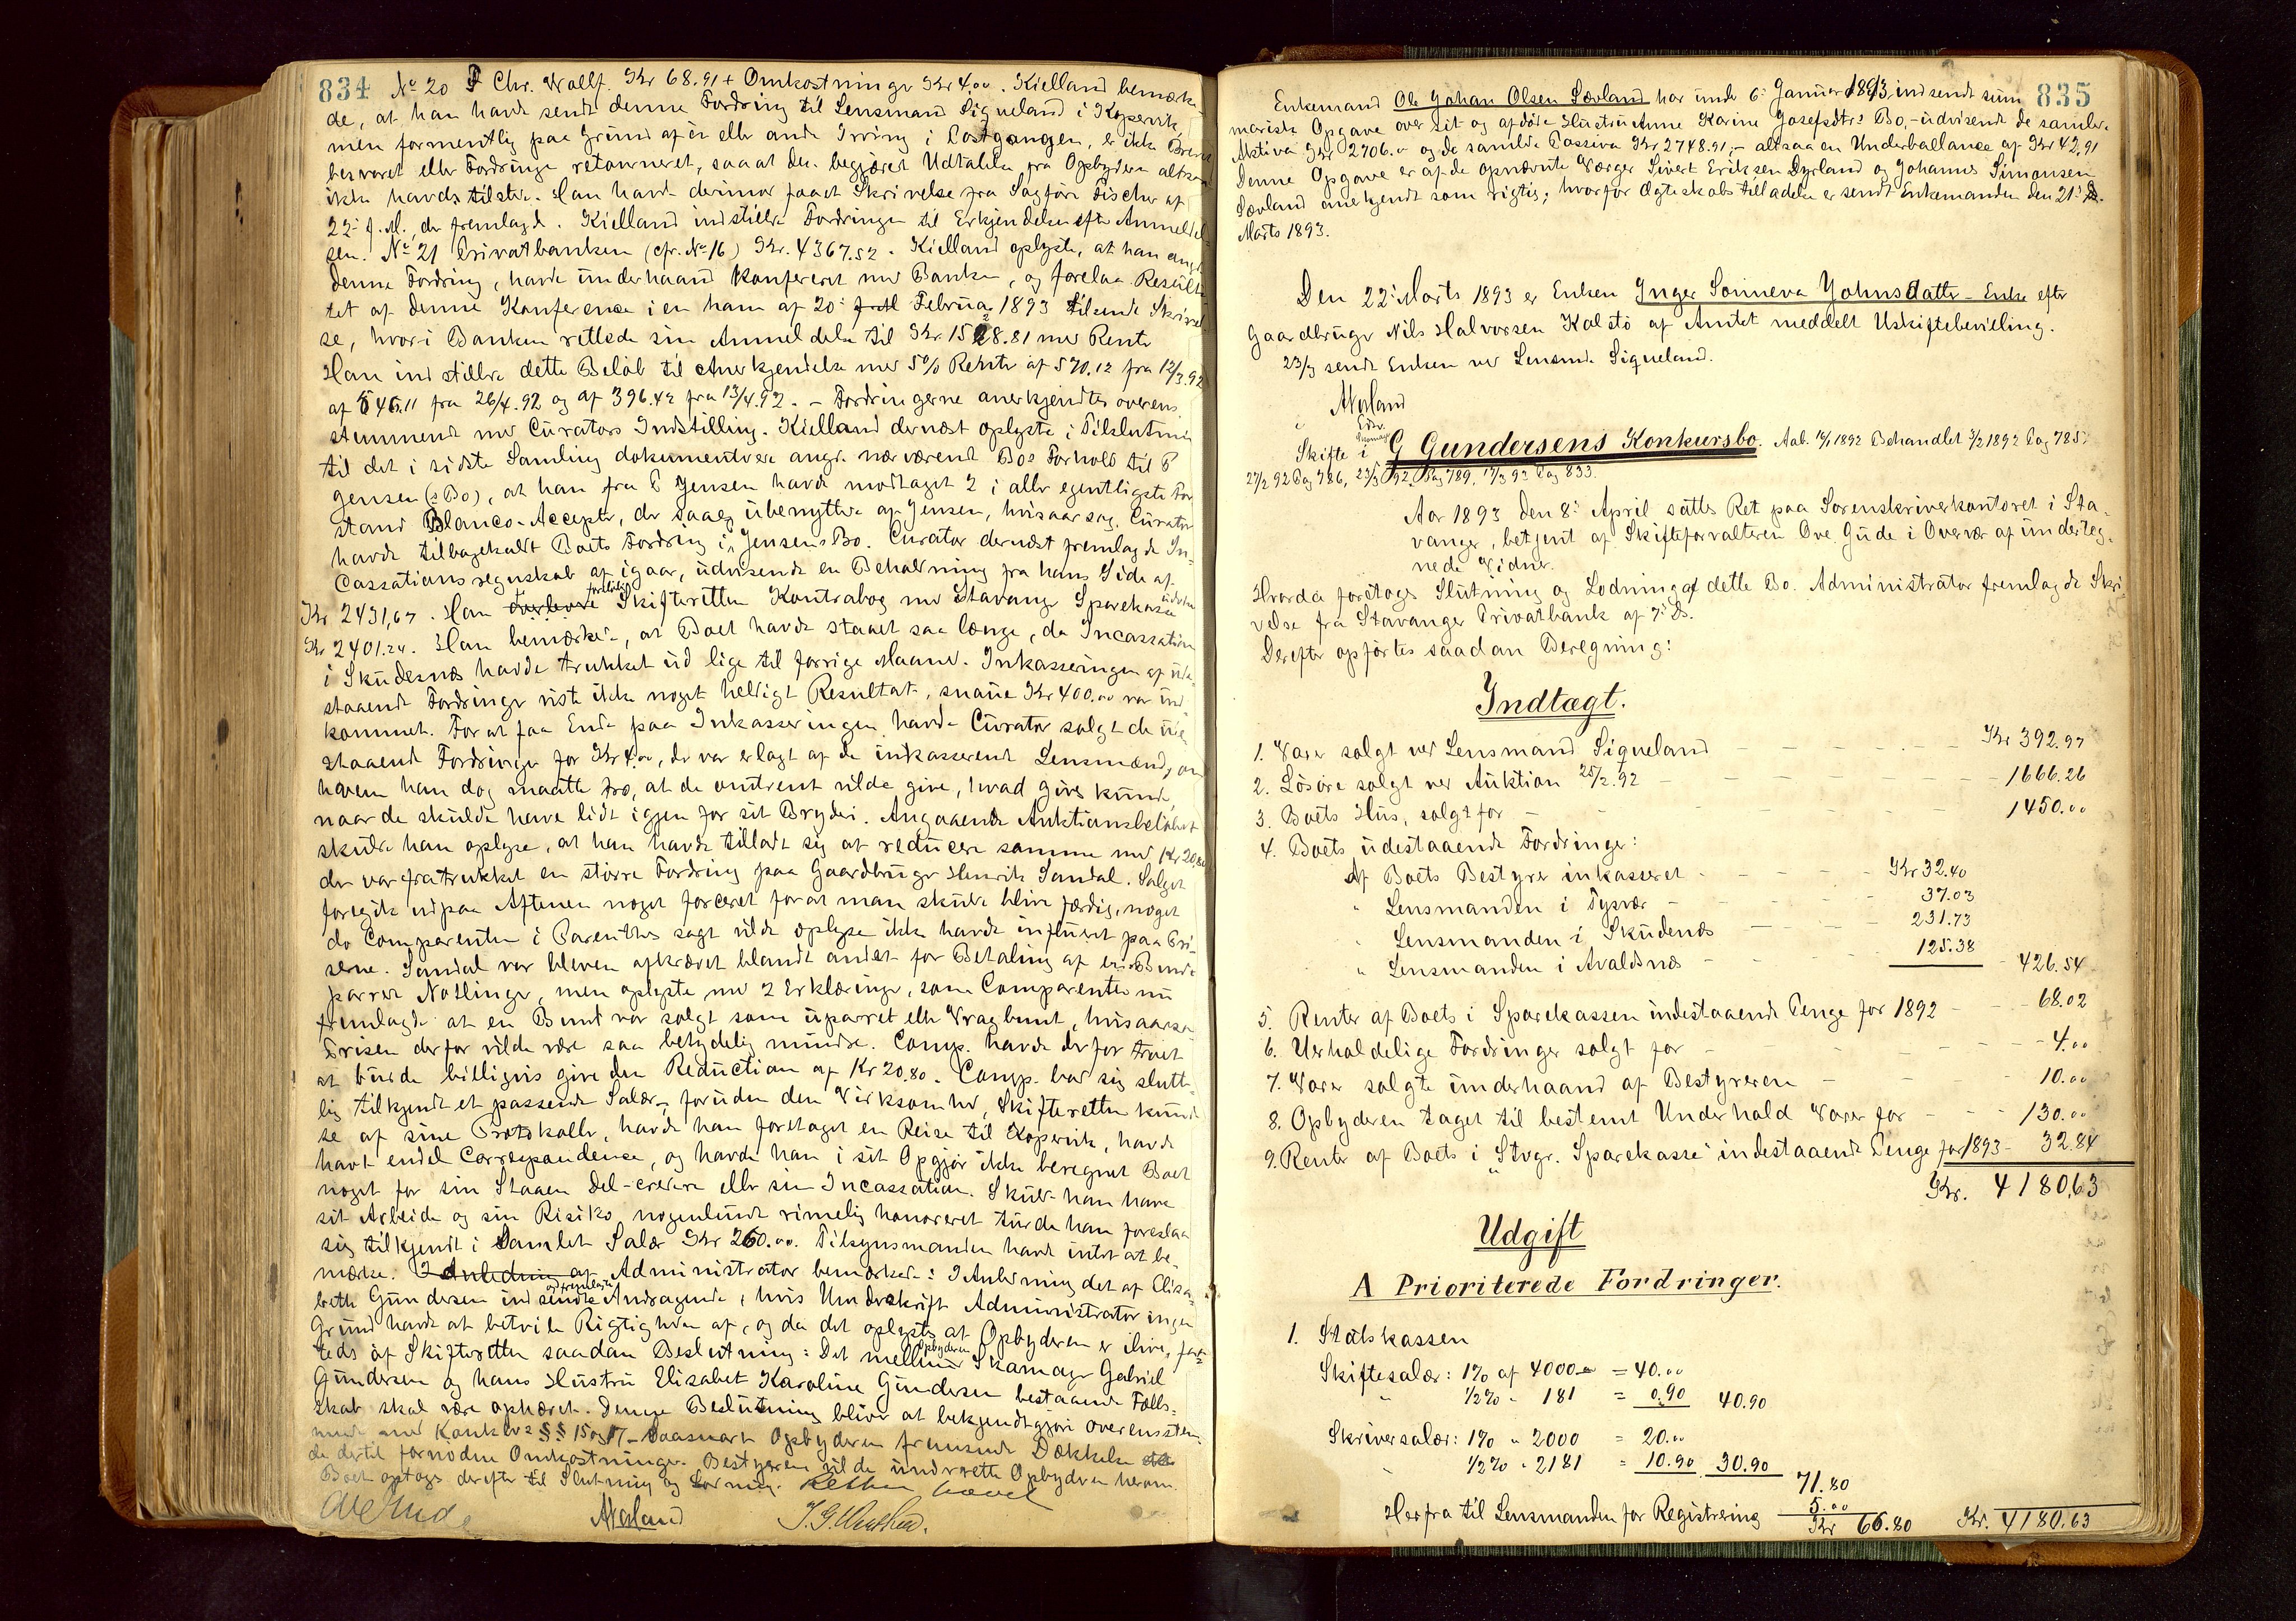 834 No 20 Chr. Wallf. Kr 68.91 + Omkostninger Kr 4.00. Kielland bemærke
de, at han havde sendt denne Fordring til Lensmand Siqueland i Kopervik,
men formentlig paa Grund af en eller anden Irring i Postgangen, er ikke Brevet
besvaret eller Fordringen retourneret, saaat den begjæret Udtalelse fra Opbyderen altsaa
ikke havdes tilstede. Han havde derimod faaet Skrivelse fra Sagfører Fischer af
22de f. M., der fremlagdes. Kielland indstillede Fordringen til Erkjendelse efter Anmeldel
sen. No 21 Privatbanken (cfr. No 16) Kr. 4367.52. Kielland oplyste, at han angd.
denne Fordring, havde underhaand konfereret med Banken, og forelaa Resulta
tet af denne Konference i en ham af 20de Februar 1893 tilsendt Skrivel
se, hvori Banken rettede sin Anmeldelse til Kr. 1528.81 med Renter
Han indstillede dette Beløb til Anerkjendelse med 5% Renter af 570.12 fra 12/3.92
af 545.11 fra 26/4.92 og af 396.42 fra 13/4.92. – Fordringerne anerkjendtes overens
stemmende med Curators Indstilling. Kielland dernæst oplyste i Tilslutning
til det i sidste Samling dokumenterede angr. nærværende Bos Forhold til P
Jensen (s Bo), at han fra P Jensen havde modtaget 2 i aller egentligste For
stand Blanco-Accepter, der saaes ubenyttede af Jensen, hvisaarsag Curator
havde tilbagekaldt Boets Fordring i Jensens Bo. Curator dernæst fremlagde In-
cassationsregnskab af igaar, udvisende en Beholdning fra hans Side af
Kr 2431,67. Han foreviste Skifteretten Kontrabog med Stavanger Sparekasse
Kr 2401.24. Han bemærkede, at Boet havde staaet saa længe, da Incassation
i Skudesnæs havde trukket ud lige til forrige Maaned. Inkasseringen af ude-
staaende Fordringer viste ikke noget heldigt Resultat, snaue Kr 400.00 var ind
kommet. For at faa Ende paa Inkasseringen havde Curator solgt de ude
staaende Fordringer for Kr 4.00, der var erlagt af de inkasserende Lensmænd, om
hvem han dog maatte tro, at de omtrent vilde give, hvad gives kunde,
naar de skulde have lidt igjen for sit Bryderi. Angaaende Auktionsbeløbet
skulde han oplyse, at han havde tilladt sig at reducere samme med Kr 20,80
der var fratrukket en større Fordring paa Gaardbruger Henrik Sandal. Salget
foregik udpaa Aftenen noget forceret forat man skulde blive færdig, noget
do Comparenten i Parenthes sagt vilde oplyse ikke havde influeret paa Pri-
serne. Sandal var bleven afkrævet blandt andet for Betaling af en Bundt
parrer Nøtlinger, men oplyste med 2 Erklæringer, som Comparenten nu
fremlagde at en Bundt var solgt som uparret eller Vragbundt, hvisaarsag
Prisen derfor vilde være saa betydelig mindre. Comp. havde derfor troet
at burde billigvis give den Reduction af Kr 20.80. Comp. bad sig slutte
lig tilkjendt et passende Salær, foruden den Virksomhed, Skifteretten kunde
se af sine Protokoller, havde han foretaget en Reise til Kopervik, havde
havt endel Correspondence, og havde han i sit Opgjør ikke beregnet Boet
noget for sin Staaen del-credere eller sin Incassation. Skulde han have
sit Arbeide og sin Risiko nogenlunde rimelig honoreret turde han foreslaa
sig tilkjendt i Samlet Salær Kr 260.00. Tilsynsmanden havde intet at be-
mærke. I Anledning af Administrator bemærkede: I Anledning det af Elisa-
beth Gundersen indsendte Andragende, hvis Underskrift Administrator ingen
Grund havde at betvile Rigtigheden af, og da det oplystes at Opbyderen er ilive, fat-
tedes af Skifteretten saadan Beslutning: Det mellem Opbyderen Skomager Gabriel
Gundersen og hans Hustru Elisabet Karoline Gundersen bestaaende Fælles-
skab skal være ophævet. Denne Beslutning bliver at bekjendtgjøre overensstem-
mende med Konkl. §§ 15 og 17 – saasnart Opbyderen fremsende Dækkelse
de dertil fornødne Omkostninger. Bestyreren vilde underrette Opbyderen herom.
Boet optoges derefter til Slutning og Lodning. Retten hævet
Ove Gude Aaland
835
Enkemand Ole Johan Olsen Sævland har under 6te Januar 1893 indsendt sum
marisk Opgave over sit og afdøde Hustru Anne Karine Josefsdtrs Bo, – udvisende de samlede
Aktiva Kr 2706.00 og de samlede Passiva Kr 2748.91, – altsaa en Underballance af Kr 42,91
Denne Opgave er af de opnævnte Værger Sivert Eriksen Dyrland og Johannes Simonsen
Sævland anerkjendt som rigtig; hvorfor Ægteskabstilladelse er sendt Enkemanden den 21de
Marts 1893.
Den 22de Marts 1893 er Enken Inger Sonneva Johnsdatter – Enke efter
Gaardbruger Nils Halvorsen Kalstø af Amtet meddelt Uskiftebevilling.
23/3 sendt Enken ved Lensmd. Siqueland.
Aaland
Skifte i G Gundersens Konkursbo. Aab. 16/1 1892 Behandlet 3/2 1892 Pag 785.
27/2 92 Pag 786, 23/5 92, Pag 789, 17/3 93 Pag 833.
Aar 1893 den 8de April sattes Ret paa Sorenskriverkontoret i Sta-
vanger, betjent af Skifteforvalteren Ove Gude i Overvær af underteg-
nede Vidner.
Hvorda foretoges Slutning og Lodning af dette Bo. Administrator fremlagde Skri
velse fra Stavanger Privatbank af 7de ds.
Derefter opførtes saadan Beregning:
Indtægt.
1. Varer solgt ved Lensmand Siqueland Kr 392.97
2. Løsøre solgt ved Auktion 25/2.92 1666.26
3. Boets Hus, solgt for 1450.00
4. Boets udestaaende Fordringer:
Af Boets Bestyrer inkasseret Kr 32.40
" Lensmanden i Tysvær 37.03
" Lensmanden i Skudenæs 231.73
" Lensmanden i Avaldsnæs 125.38 426.54
5. Renter af Boets i Sparekassen indestaaende Penge for 1892 68.02
6. Uerholdelige Fordringer solgt for 4.00
7. Varer solgte underhaand af Bestyreren 10.00
8. Opbyderen taget til bestemt Underhold Varer for 130.00
9. Renter af Boets i "Stvgr. Sparekasse" indestaaende Penge for 1893 32.84
Kr. 4180,63
Udgift
A Prioriterede Fordringer.
1. Statskassen
Skiftesalær: 1% af 4000 = 40.00
" 1/2% " 181 = 0.90 40.90
Skriversalær: 1% " 2000 = 20.00
" 1/2% " 2181 = 10.90 30.90
71.80
Herfra til Lensmanden for Registrering 5.00
Kr 66.80 Kr. 4180.63